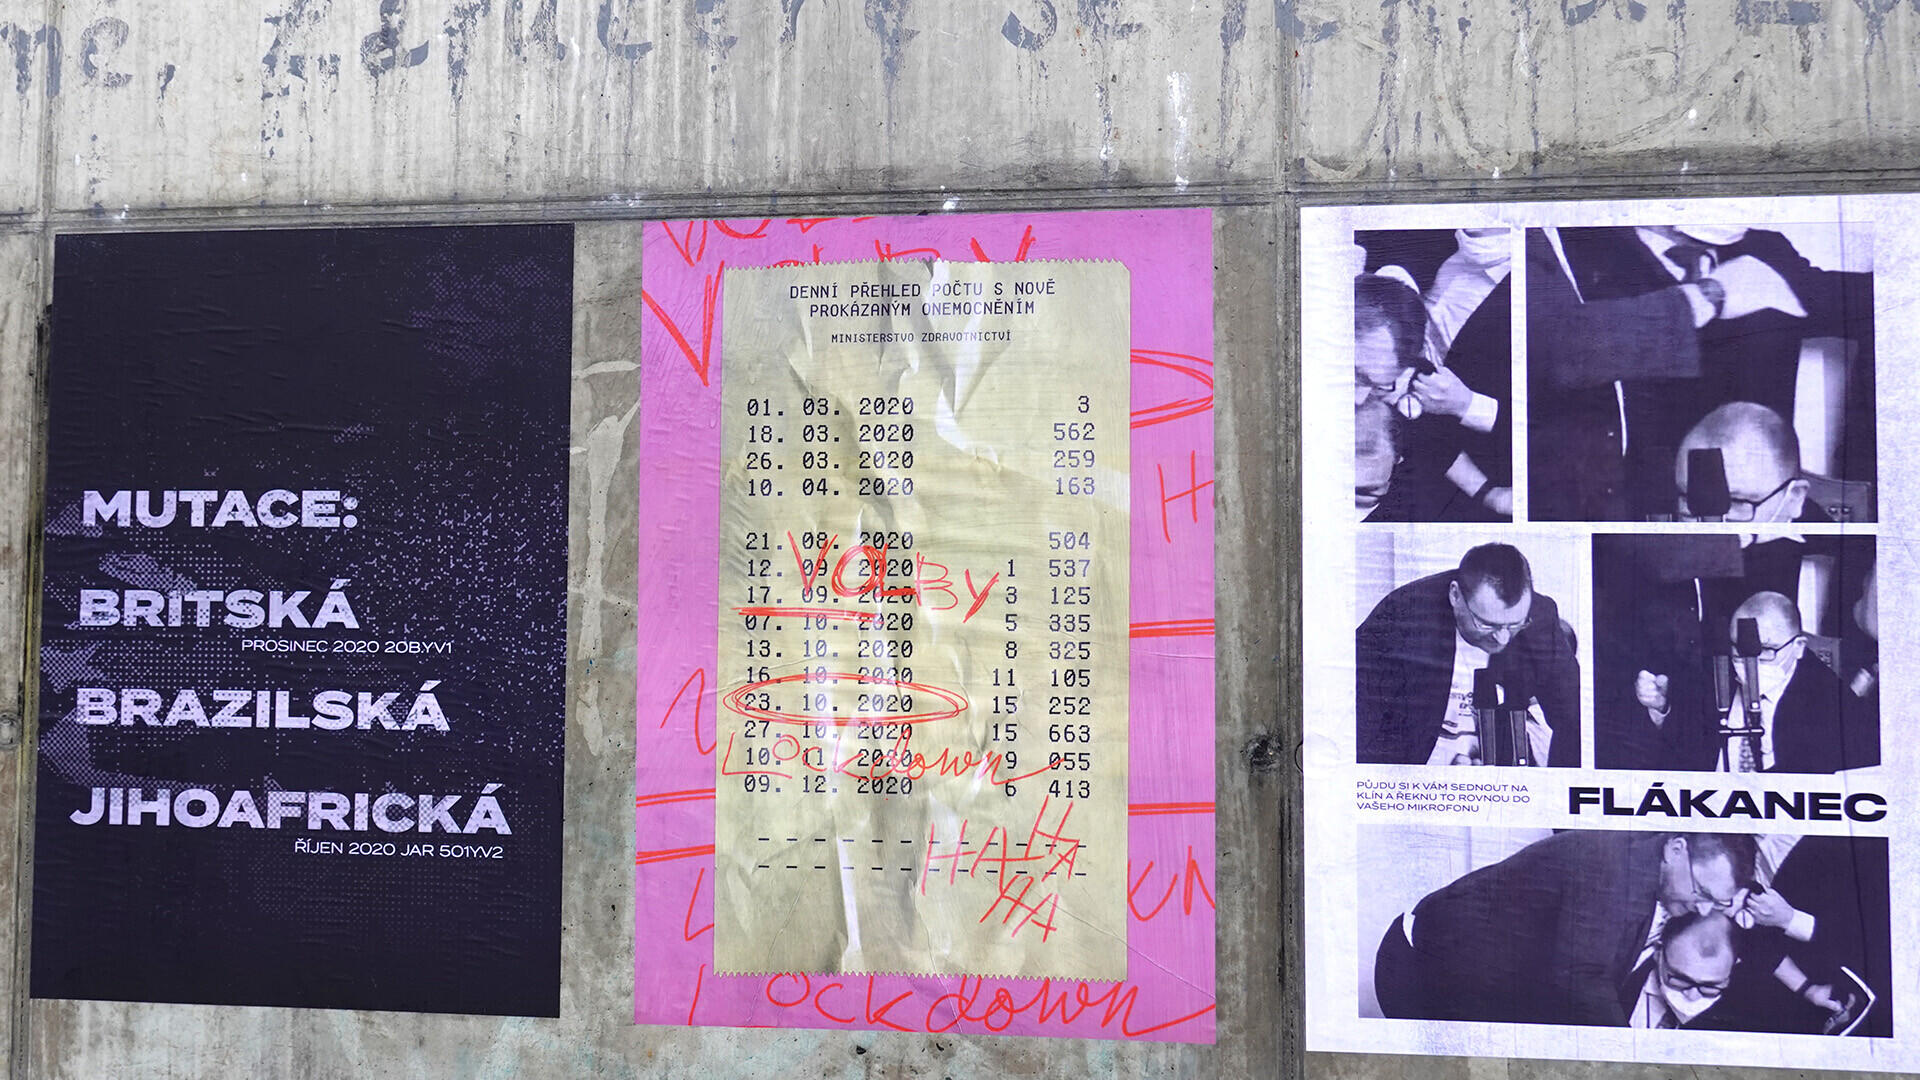 MUTACE:
BRITSKÁ
PROSINEC 2020 20B.YV1
BRAZILSKÁ
JIHOAFRICKÁ
ŘÍJEN 2020 JAR 501Y.V2
DENNÍ PŘEHLED POČTU S NOVĚ
PROKÁZANÝM ONEMOCNĚNÍM
MINISTERSTVO ZDRAVOTNICTVÍ
01. 03. 2020 3
18. 03. 2020 562
26. 03. 2020 259
10. 04. 2020 163
21. 08. 2020 504
12. 09 2020 1 537
VOLBY
17. 09. 2020 3 125
07. 10. 2020 5 335
13. 10. 2020 8 325
16. 10. 2020 11 105
23. 10. 2020 15 252
27. 10. 2020 15 663
Lockdown
10. 11 2020 9 055
09. 12. 2020 6 413
HAHA
HA
Lockdown
PŮJDU SI K VÁM SEDNOUT NA
KLÍN A ŘEKNU TO ROVNOU DO
VAŠEHO MIKROFONU
FLÁKANEC